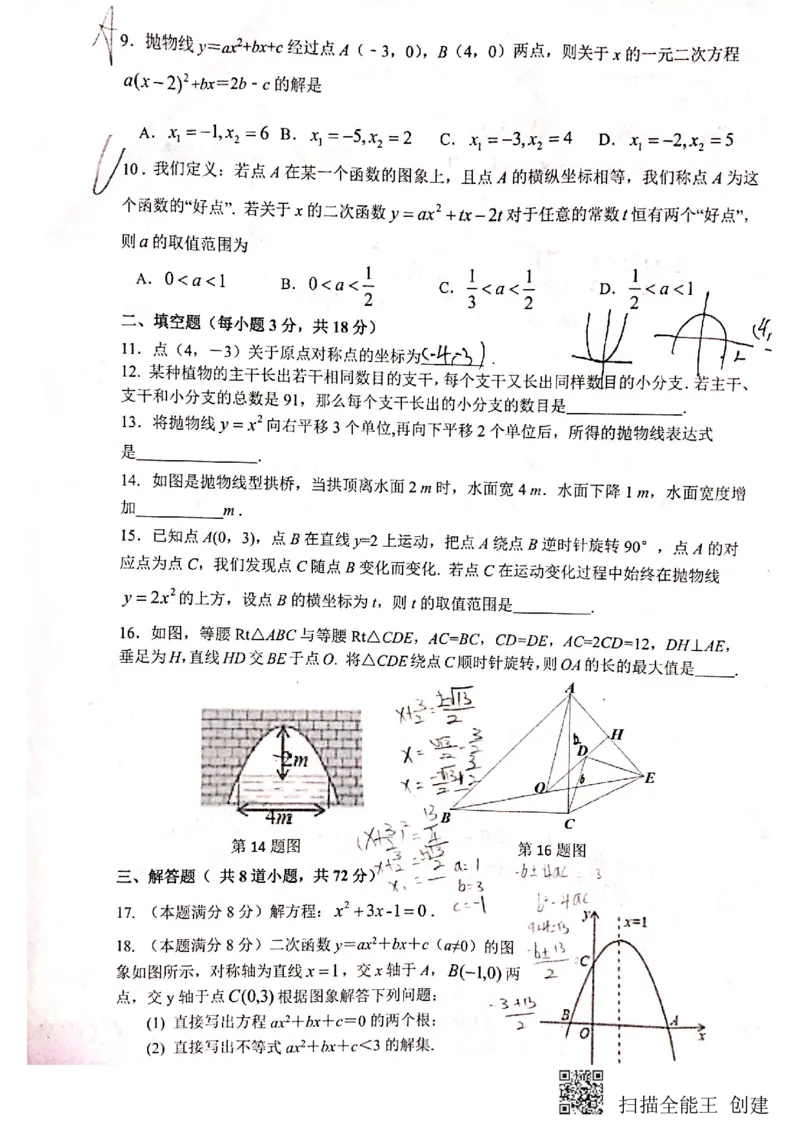 A
9．抛物线 y=ax²+bx+c 经过点 A（﹣3，0），B（4，0）两点，则关于 x 的一元二次方程
a(x－2)²+bx=2b﹣c 的解是
A．x₁=－1,x₂=6 B．x₁=－5,x₂=2 C．x₁=－3,x₂=4 D．x₁=－2,x₂=5
10．我们定义：若点 A 在某一个函数的图象上，且点 A 的横纵坐标相等，我们称点 A 为这
个函数的“好点”. 若关于 x 的二次函数 y=ax²+tx－2t 对于任意的常数 t 恒有两个“好点”，
则 a 的取值范围为
A．0<a<1 B．0<a<1/2 C．1/3<a<1/2 D．1/2<a<1
二、填空题（每小题 3 分，共 18 分）
11．点（4，－3）关于原点对称点的坐标为(-4,-3)．
12. 某种植物的主干长出若干相同数目的支干，每个支干又长出同样数目的小分支．若主干、
支干和小分支的总数是 91，那么每个支干长出的小分支的数目是______________．
13．将抛物线 y=x² 向右平移 3 个单位,再向下平移 2 个单位后，所得的抛物线表达式
是______________．
14．如图是抛物线型拱桥，当拱顶离水面 2 m 时，水面宽 4 m．水面下降 1 m，水面宽度增
加__________m．
15．已知点 A(0，3)，点 B 在直线 y=2 上运动，把点 A 绕点 B 逆时针旋转 90°，点 A 的对
应点为点 C，我们发现点 C 随点 B 变化而变化. 若点 C 在运动变化过程中始终在抛物线
y=2x² 的上方，设点 B 的横坐标为 t，则 t 的取值范围是__________．
16．如图，等腰 Rt△ABC 与等腰 Rt△CDE，AC=BC，CD=DE，AC=2CD=12，DH⊥AE，
垂足为 H，直线 HD 交 BE 于点 O. 将△CDE 绕点 C 顺时针旋转，则 OA 的长的最大值是_____.
2m
4m
第 14 题图
A
H
D
6
O
E
B
C
第 16 题图
x+3/2=±√13/2
三、解答题（ 共 8 道小题，共 72 分）
a=1
b=3
c=-1
b²-4ac
17. （本题满分 8 分）解方程：x²+3x-1=0．
18. （本题满分 8 分）二次函数 y=ax²+bx+c（a≠0）的图
象如图所示，对称轴为直线 x=1，交 x 轴于 A，B(−1,0) 两
点，交 y 轴于点 C(0,3) 根据图象解答下列问题：
(1) 直接写出方程 ax²+bx+c=0 的两个根；
(2) 直接写出不等式 ax²+bx+c<3 的解集.
y
x=1
C
B
O
A
x
扫描全能王 创建